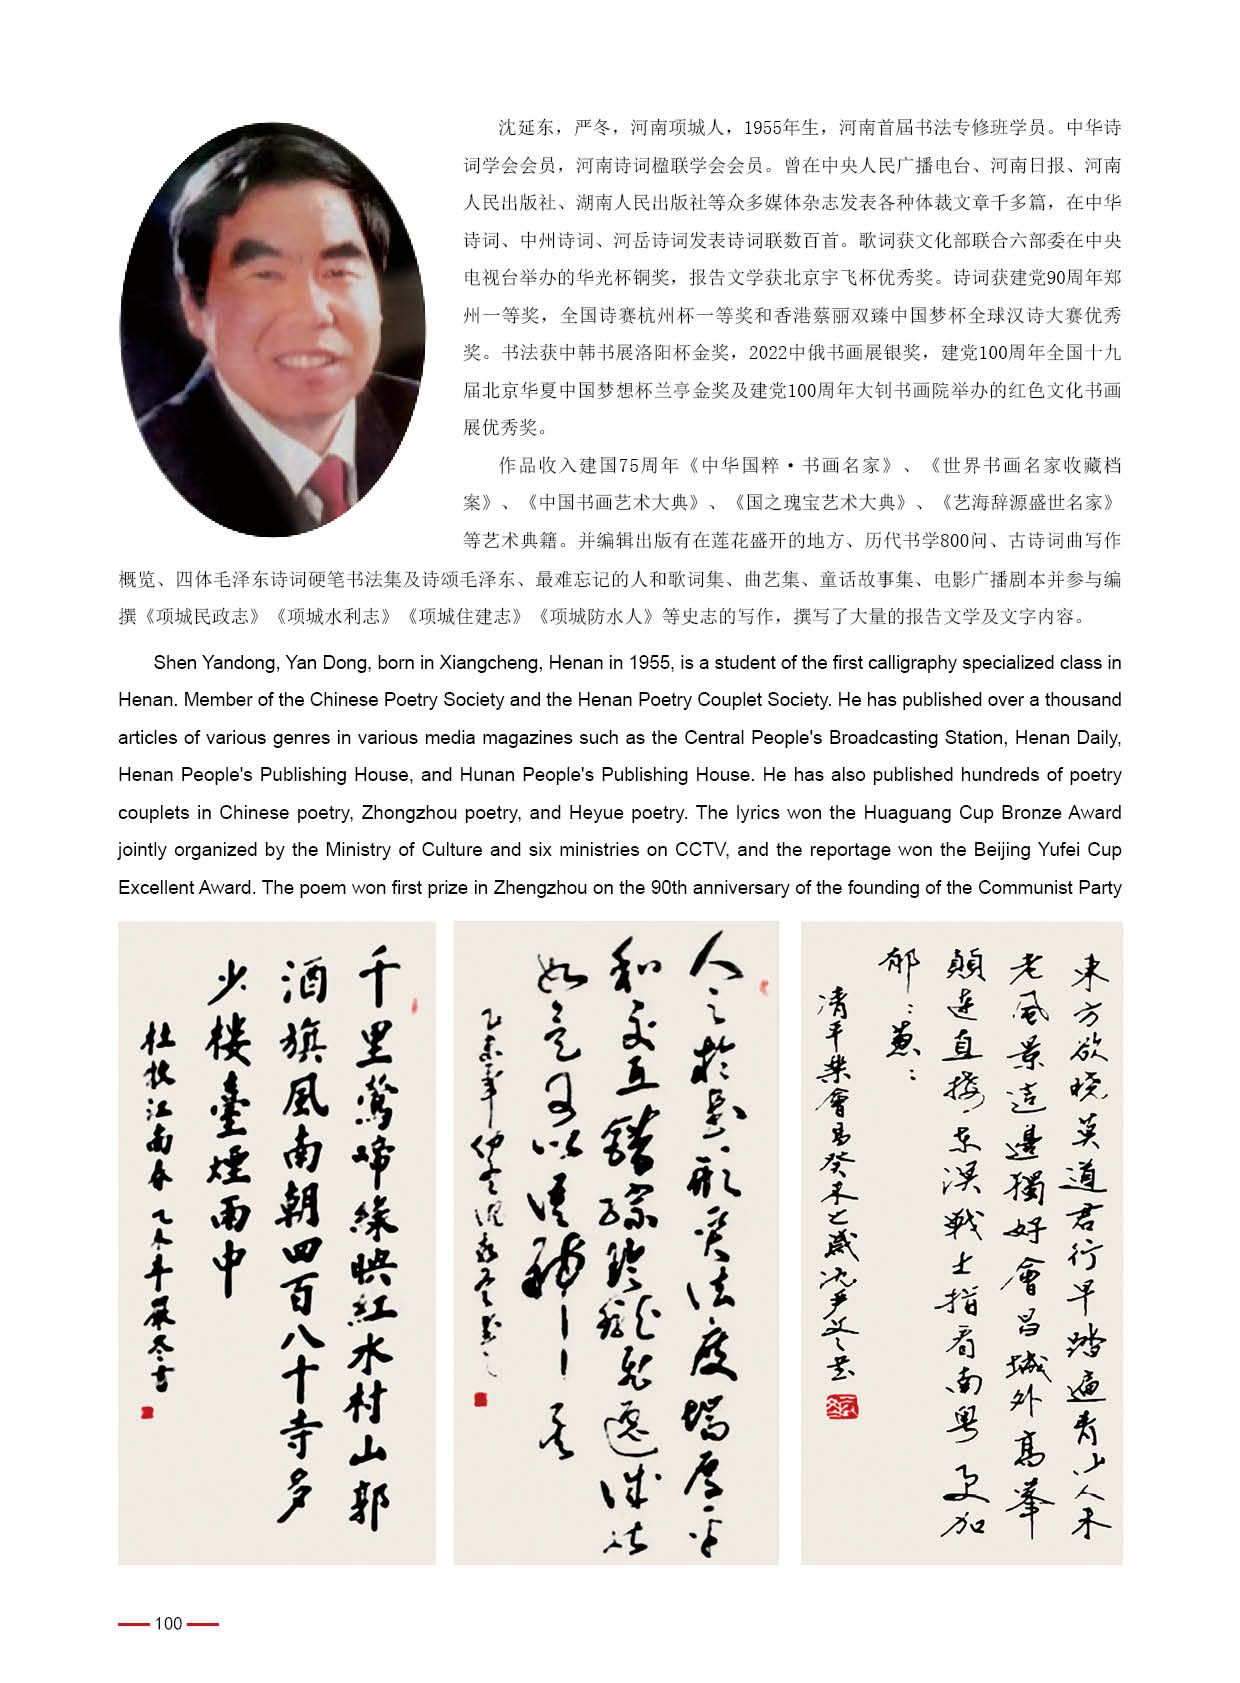 沈延东，严冬，河南项城人，1955年生，河南首届书法专修班学员。中华诗
词学会会员，河南诗词楹联学会会员。曾在中央人民广播电台、河南日报、河南
人民出版社、湖南人民出版社等众多媒体杂志发表各种体裁文章千多篇，在中华
诗词、中州诗词、河岳诗词发表诗词联数百首。歌词获文化部联合六部委在中央
电视台举办的华光杯铜奖，报告文学获北京宇飞杯优秀奖。诗词获建党90周年郑
州一等奖，全国诗赛杭州杯一等奖和香港蔡丽双臻中国梦杯全球汉诗大赛优秀
奖。书法获中韩书展洛阳杯金奖，2022中俄书画展银奖，建党100周年全国十九
届北京华夏中国梦想杯兰亭金奖及建党100周年大钊书画院举办的红色文化书画
展优秀奖。
作品收入建国75周年《中华国粹·书画名家》、《世界书画名家收藏档
案》、《中国书画艺术大典》、《国之瑰宝艺术大典》、《艺海辞源盛世名家》
等艺术典籍。并编辑出版有在莲花盛开的地方、历代书学800问、古诗词曲写作
概览、四体毛泽东诗词硬笔书法集及诗颂毛泽东、最难忘记的人和歌词集、曲艺集、童话故事集、电影广播剧本并参与编
撰《项城民政志》《项城水利志》《项城住建志》《项城防水人》等史志的写作，撰写了大量的报告文学及文字内容。
Shen Yandong, Yan Dong, born in Xiangcheng, Henan in 1955, is a student of the first calligraphy specialized class in
Henan. Member of the Chinese Poetry Society and the Henan Poetry Couplet Society. He has published over a thousand
articles of various genres in various media magazines such as the Central People's Broadcasting Station, Henan Daily,
Henan People's Publishing House, and Hunan People's Publishing House. He has also published hundreds of poetry
couplets in Chinese poetry, Zhongzhou poetry, and Heyue poetry. The lyrics won the Huaguang Cup Bronze Award
jointly organized by the Ministry of Culture and six ministries on CCTV, and the reportage won the Beijing Yufei Cup
Excellent Award. The poem won first prize in Zhengzhou on the 90th anniversary of the founding of the Communist Party
千里莺啼緑映红水村山郭
酒旗風南朝四百八十寺多
少楼臺煙雨中
杜牧江南春
東方欲晓莫道君行早踏遍青山人未
老風景這邊獨好會昌城外高峯
顛連直接東溟戦士指看南粤更加
郁〻葱〻
清平樂會昌癸未
100